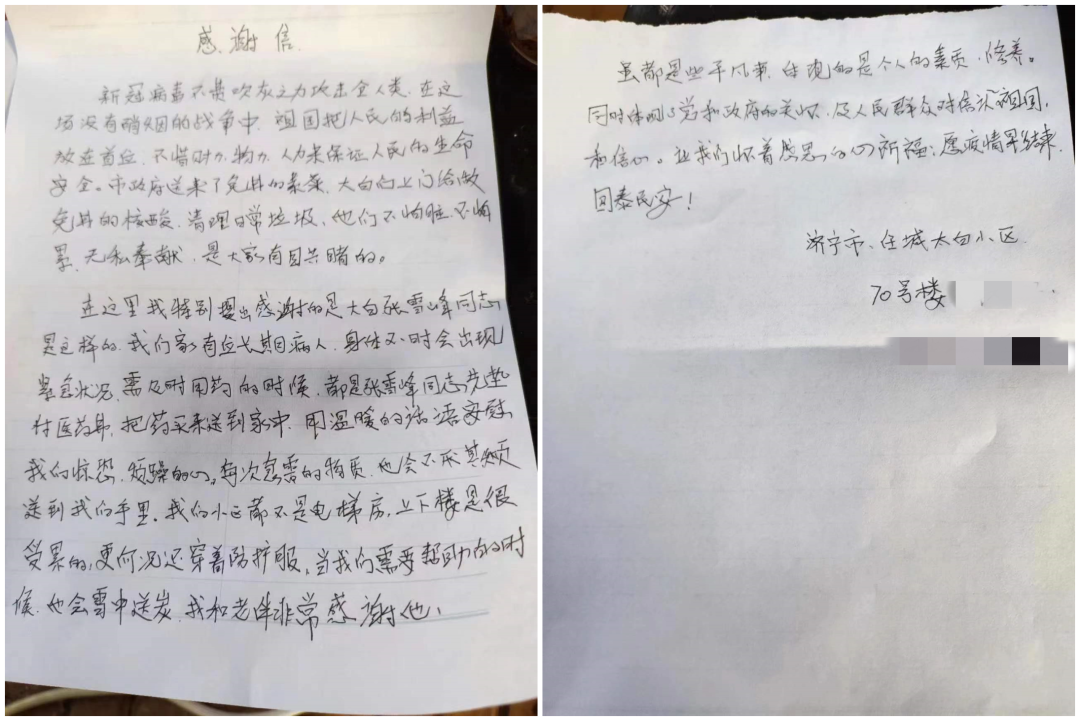 感谢信
新冠病毒不费吹灰之力攻击全人类,在这
场没有硝烟的战争中,祖国把人民的利益
放在首位,不惜财力、物力、人力来保证人民的生命
安全。市政府送来了免费的蔬菜,大白们上门给做
免费的核酸,清理日常垃圾,他们不怕脏、不怕
累,无私奉献,是大家有目共睹的。
在这里我特别提出感谢的是大白张雪峰同志,
是这样的,我们家有位长期病人,身体不时会出现
紧急状况,需及时用药的时候,都是张雪峰同志先垫
付医药费,把药买来送到家中,用温暖的话语安慰
我们惊恐、烦躁的心,每次急需的物质,他会不厌其烦
送到我们手里。我们小区都不是电梯房,上下楼是很
受累的,更何况还穿着防护服,当我们需要帮助的时
候,他会雪中送炭,我和老伴非常感谢他,
虽都是些平凡事,体现的是个人的素质、修养。
同时体现了党和政府的关怀,及人民群众对祖国,
和信心。让我们怀着感恩的心祈福:愿疫情早结束,
国泰民安!
济宁市、任城太白小区
70号楼